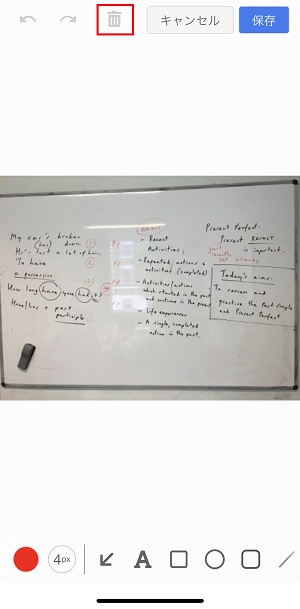 キャンセル
保存
My car's broken
(has) down. ①
He's lost a lot of hair.
②
To have
a possession
③
How long have you had it?
Have/has + past
participle
- Recent
Activities
- Repeated actions +
activities (completed)
- Activities/actions
which started in the past
and continue in the present
- Life experiences
- A single, completed
action in the past.
Present Perfect.
Present RESULT
is important.
just
recently
yet already
Today's aims:
To review and
practise the Past Simple
and Present Perfect
4px
A